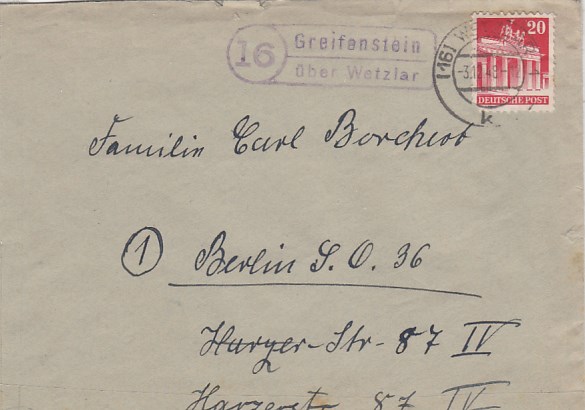 16
Greifenstein
über Wetzlar
(16) W
-3.12.48-
k
20
DEUTSCHE POST
Familie Carl Borchert
1 Berlin S. O. 36
Harzer-Str- 87 IV
Harzerstr 87 IV